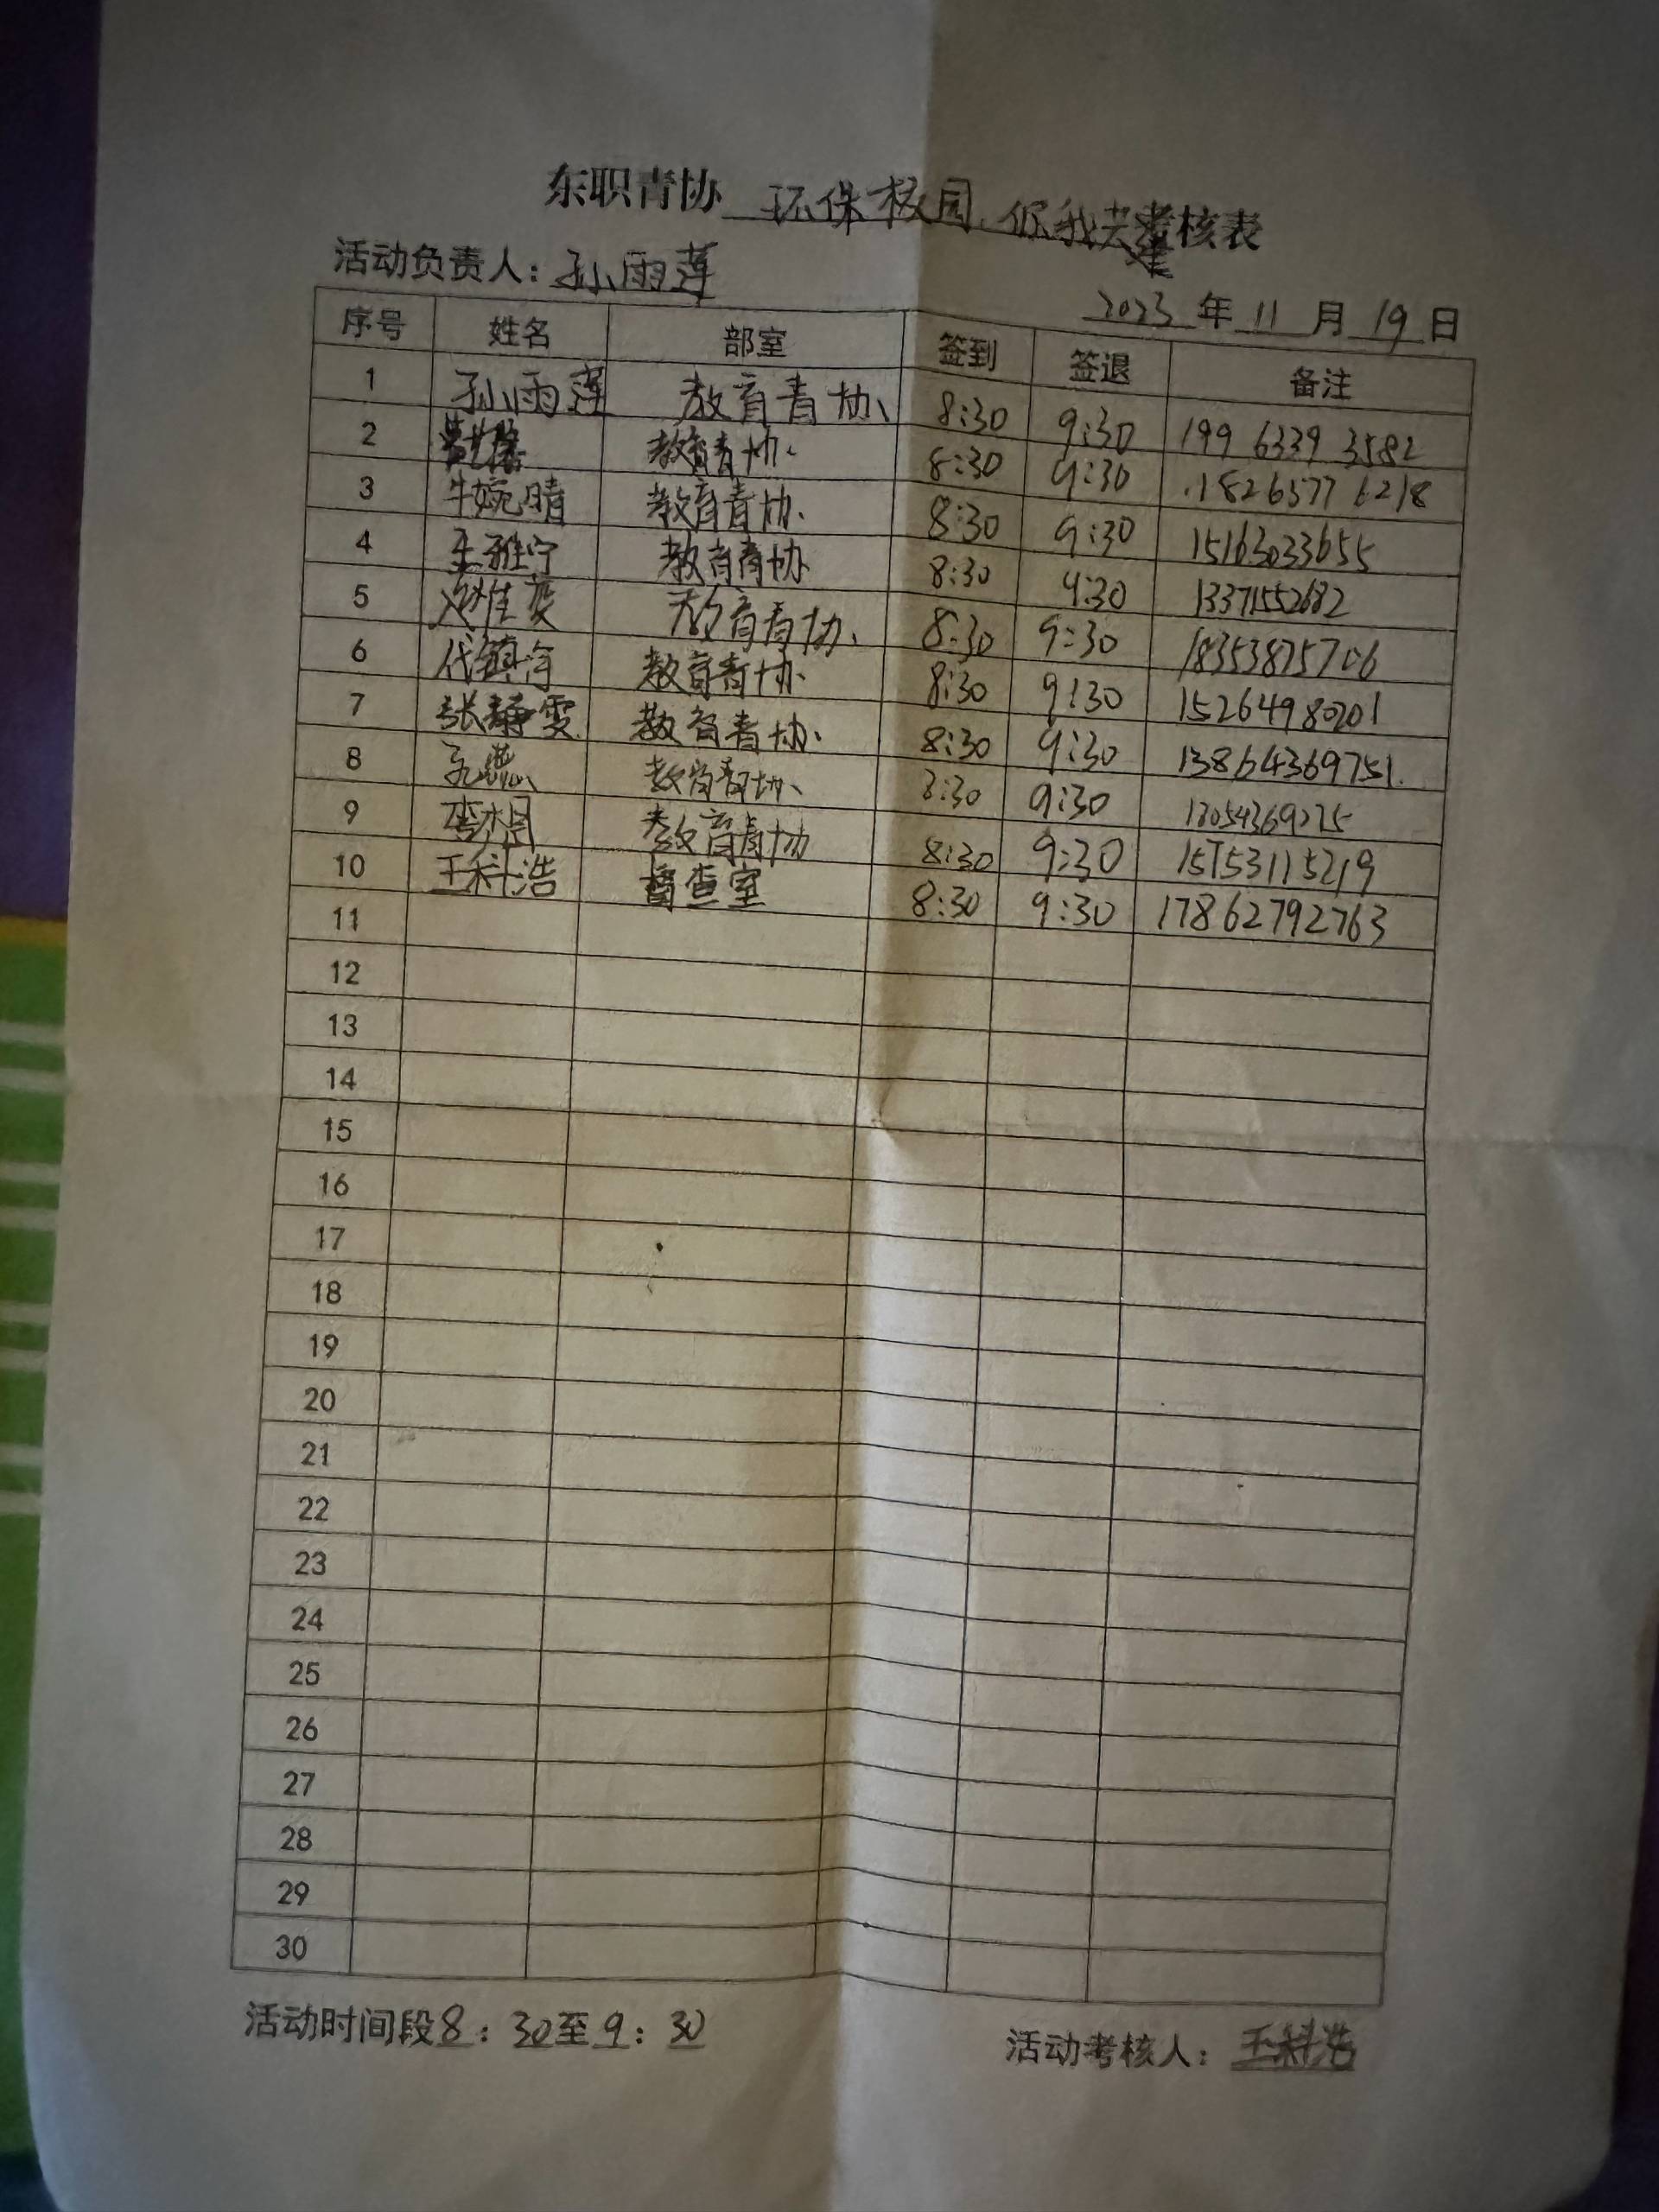 东职青协 环保校园,你我共建 考核表
活动负责人: 孙雨莲
2023 年 11 月 19 日
序号 姓名 部室 签到 签退 备注
1 孙雨莲 教育青协 8:30 9:30 199 6339 3582
2 教育青协 8:30 9:30 18265776218
3 牛婉晴 教育青协 8:30 9:30 15163033655
4 王雅宁 教育青协 8:30 9:30 13371552682
5 教育青协 8:30 9:30 18353875706
6 教育青协 8:30 9:30 15264980201
7 张静雯 教育青协 8:30 9:30 13864369751
8 教育青协 8:30 9:30
9 教育青协 8:30 9:30 15153115219
10 王科浩 督查室 8:30 9:30 17862792763
11
12
13
14
15
16
17
18
19
20
21
22
23
24
25
26
27
28
29
30
活动时间段 8:30至9:30 活动考核人: 王科浩